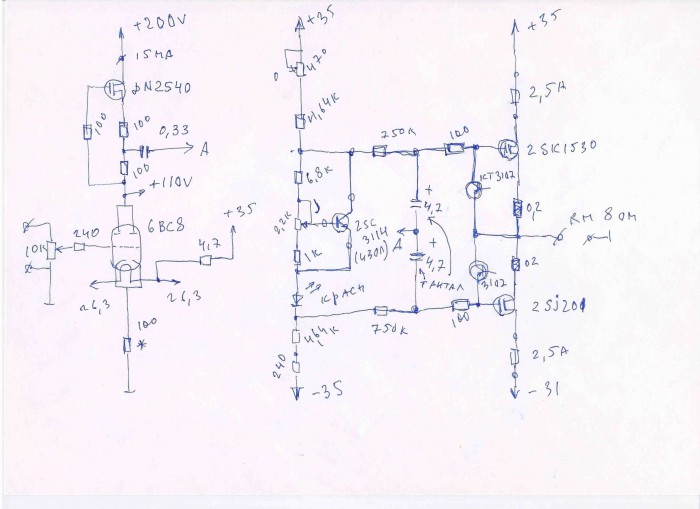 +200V
15MA
DN2540
100
100
0,33
A
100
+110V
6BC8
+35
240
10K
4,7
a6,3
26,3
100
*
+35
0
470
4,64K
250K
100
2SK1530
2,5A
6,8K
KT3102
2,2K
0
2SC
3114
(430Л)
+
4,2
A
+
4,7
0,2
RH 8 OM
1K
красн
тантал
3102
02
464K
750K
100
2SJ201
240
2,5A
-35
-31